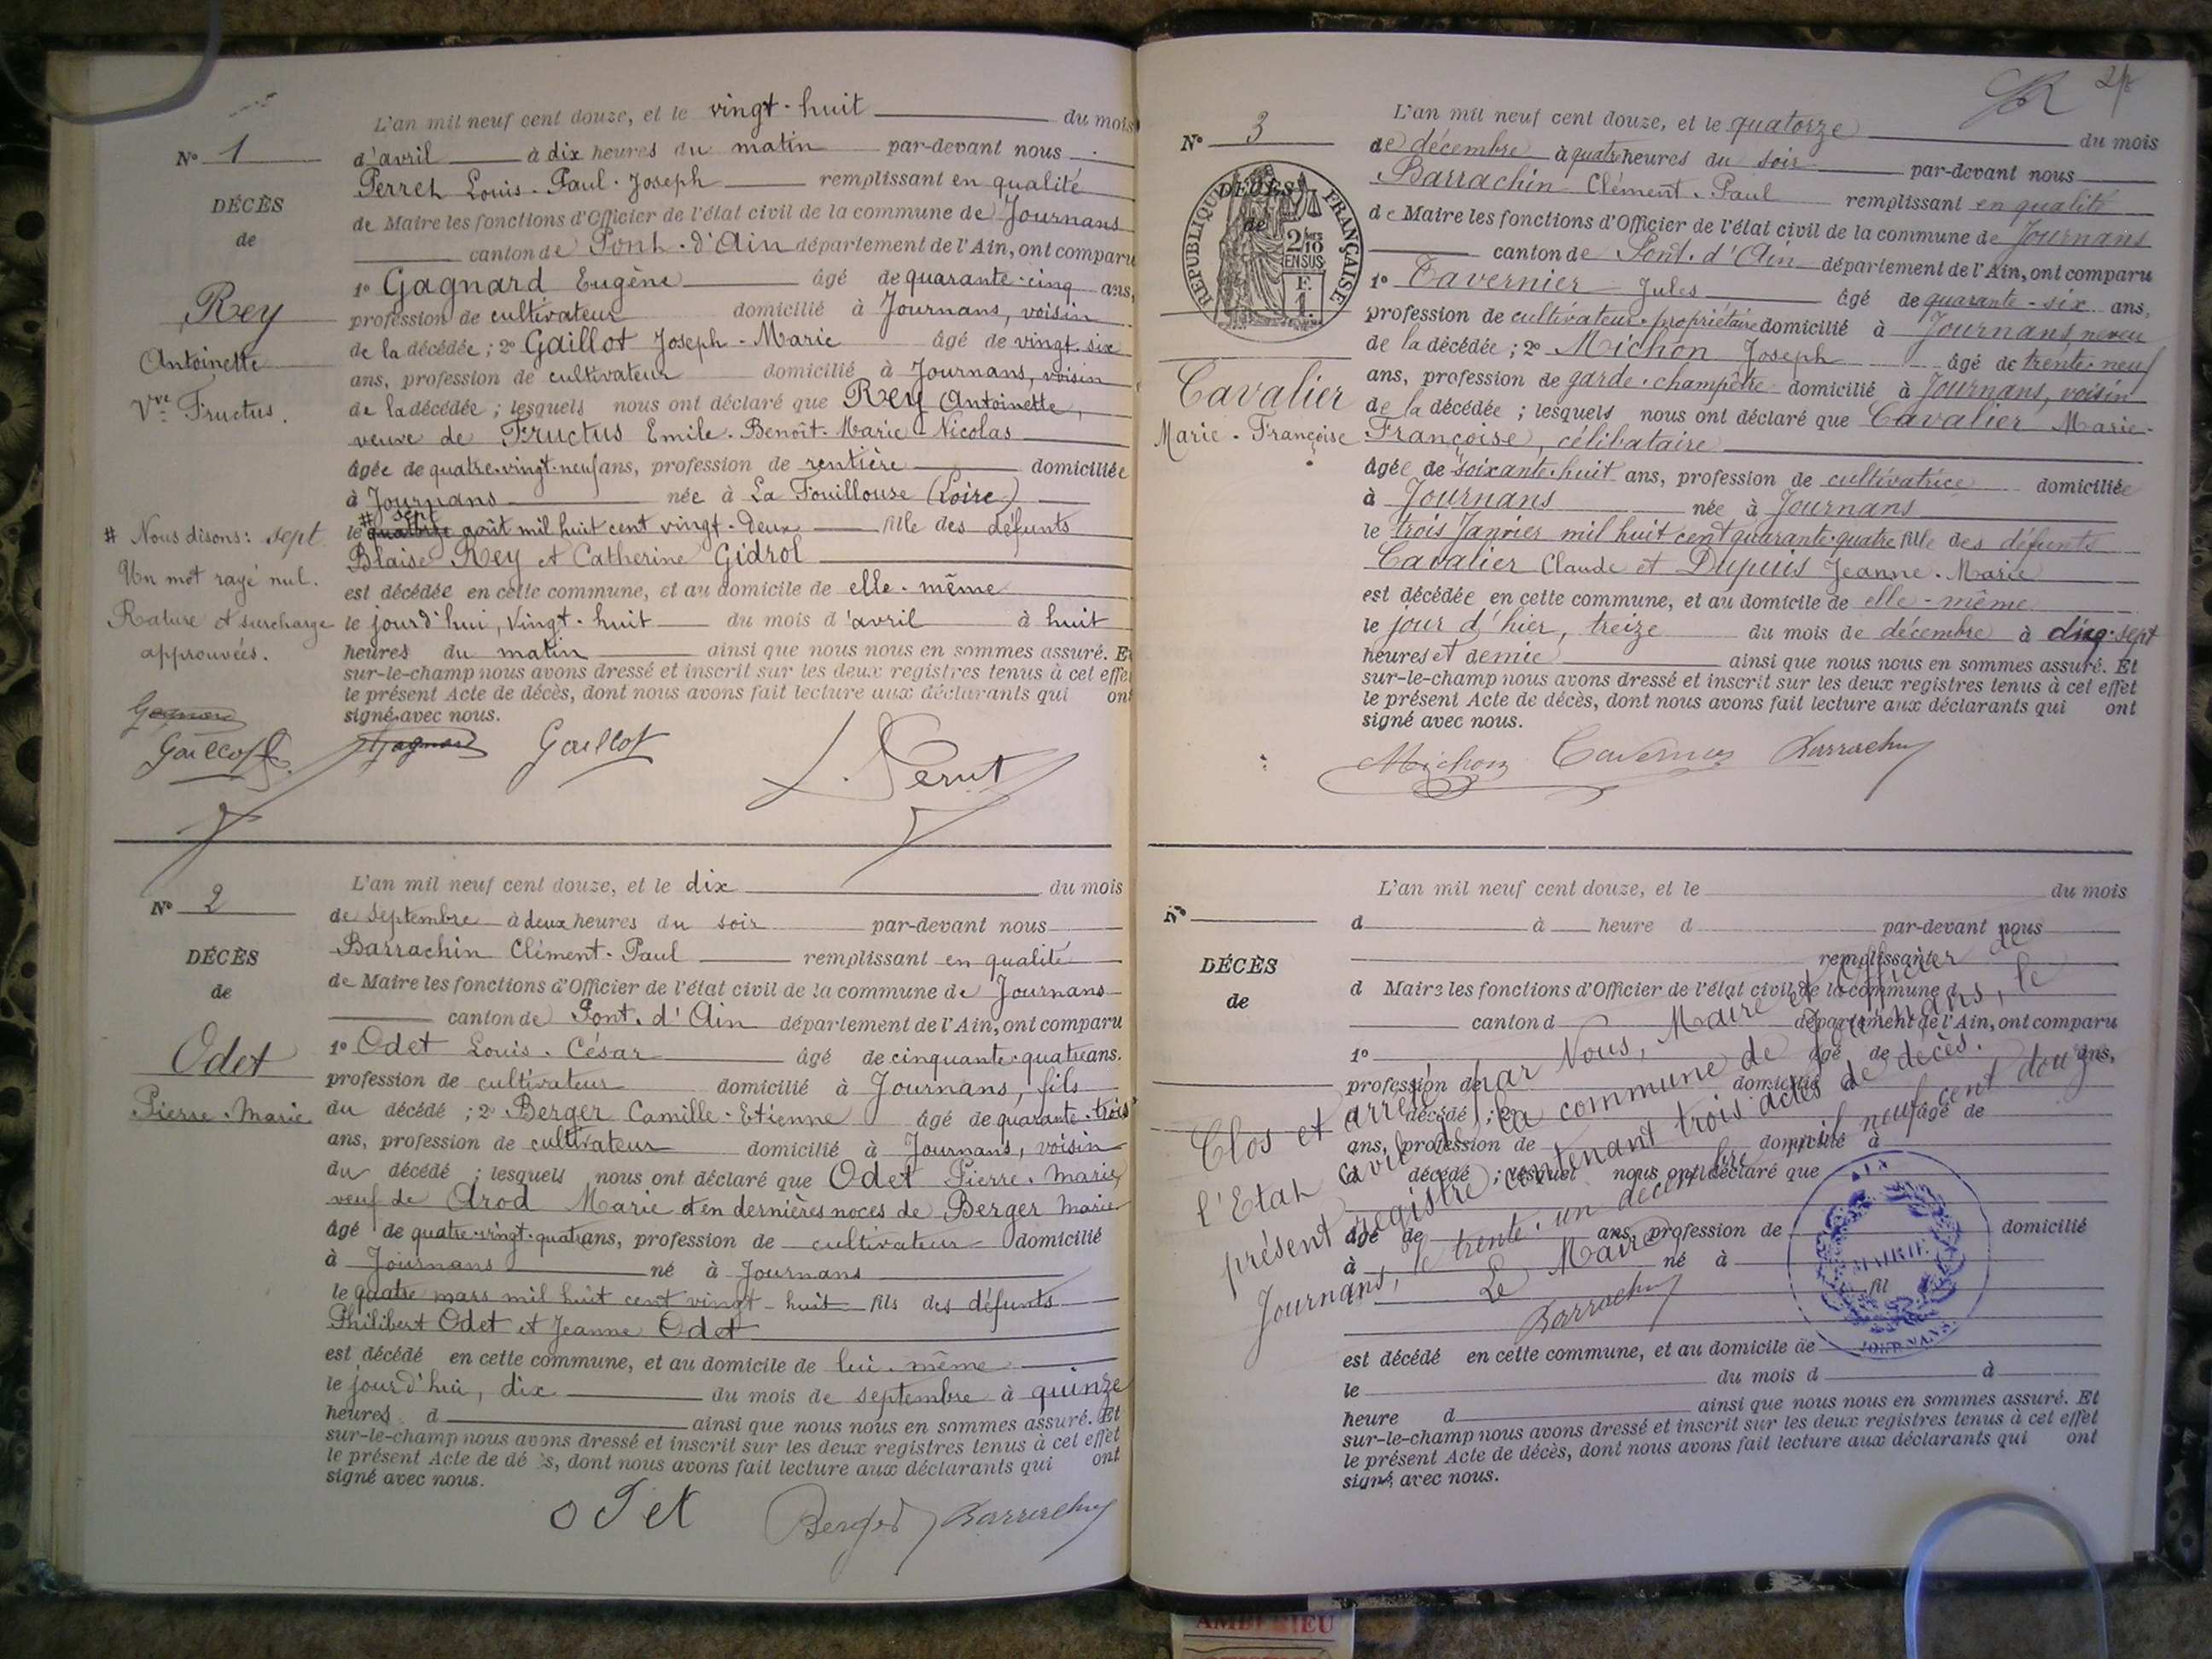 N° 1
DÉCÈS
de
Rey
Antoinette
Vve Fructus.
# Nous disons: sept
Un mot rayé nul.
Rature et surcharge
approuvées.
Gagnard
Gaillot
L'an mil neuf cent douze, et le vingt-huit du mois
d'avril à dix heures du matin par-devant nous
Perret Louis-Paul-Joseph remplissant en qualité
de Maire les fonctions d'Officier de l'état civil de la commune de Journans
canton de Pont-d'Ain département de l'Ain, ont comparu
1° Gagnard Eugène âgé de quarante-cinq ans,
profession de cultivateur domicilié à Journans, voisin
de la décédée ; 2° Gaillot Joseph-Marie âgé de vingt-six
ans, profession de cultivateur domicilié à Journans, voisin
de la décédée ; lesquels nous ont déclaré que Rey Antoinette,
veuve de Fructus Emile-Benoît-Marie-Nicolas
âgée de quatre-vingt-neuf ans, profession de rentière domiciliée
à Journans née à La Fouillouse (Loire)
# sept
le août mil huit cent vingt-deux fille des défunts
Blaise Rey et Catherine Gidrol
est décédée en cette commune, et au domicile de elle-même
le jourd'hui, vingt-huit du mois d'avril à huit
heures du matin ainsi que nous nous en sommes assuré. Et
sur-le-champ nous avons dressé et inscrit sur les deux registres tenus à cet effet
le présent Acte de décès, dont nous avons fait lecture aux déclarants qui ont
signé avec nous.
Gagnard Gaillot L. Perret
N° 2
DÉCÈS
de
Odet
Pierre-Marie
L'an mil neuf cent douze, et le dix du mois
de septembre à deux heures du soir par-devant nous
Barrachin Clément-Paul remplissant en qualité
de Maire les fonctions d'Officier de l'état civil de la commune de Journans
canton de Pont-d'Ain département de l'Ain, ont comparu
1° Odet Louis-César âgé de cinquante-quatre ans.
profession de cultivateur domicilié à Journans, fils
du décédé ; 2° Berger Camille-Etienne âgé de quarante-trois
ans, profession de cultivateur domicilié à Journans, voisin
du décédé ; lesquels nous ont déclaré que Odet Pierre-Marie,
veuf de Arod Marie et en dernières noces de Berger Marie
âgé de quatre-vingt-quatre ans, profession de cultivateur domicilié
à Journans né à Journans
le quatre mars mil huit cent vingt-huit fils des défunts
Philibert Odet et Jeanne Odet
est décédé en cette commune, et au domicile de lui-même
le jourd'hui, dix du mois de septembre à quinze
heures d ainsi que nous nous en sommes assuré. Et
sur-le-champ nous avons dressé et inscrit sur les deux registres tenus à cet effet
le présent Acte de dé s, dont nous avons fait lecture aux déclarants qui ont
signé avec nous.
odet Berger Barrachin
N° 3
DÉCÈS
de
RÉPUBLIQUE FRANÇAISE
2/10
EN SUS
F.
1.
Cavalier
Marie-Françoise
L'an mil neuf cent douze, et le quatorze du mois
de décembre à quatre heures du soir par-devant nous
Barrachin Clément-Paul remplissant en qualité
de Maire les fonctions d'Officier de l'état civil de la commune de Journans
canton de Pont-d'Ain département de l'Ain, ont comparu
1° Tavernier Jules âgé de quarante-six ans,
profession de cultivateur-propriétaire domicilié à Journans, neveu
de la décédée ; 2° Michon Joseph âgé de trente-neuf
ans, profession de garde-champêtre domicilié à Journans, voisin
de la décédée ; lesquels nous ont déclaré que Cavalier Marie-
Françoise, célibataire
âgée de soixante-huit ans, profession de cultivatrice domiciliée
à Journans née à Journans
le trois Janvier mil huit cent quarante-quatre fille des défunts
Cavalier Claude et Dupuis Jeanne-Marie
est décédée en cette commune, et au domicile de elle-même
le jour d'hier, treize du mois de décembre à dix-sept
heures et demie ainsi que nous nous en sommes assuré. Et
sur-le-champ nous avons dressé et inscrit sur les deux registres tenus à cet effet
le présent Acte de décès, dont nous avons fait lecture aux déclarants qui ont
signé avec nous.
Michon Tavernier Barrachin
N°
DÉCÈS
de
L'an mil neuf cent douze, et le du mois
d à heure d par-devant nous
remplissant
d Maire les fonctions d'Officier de l'état civil de la commune d
canton d département de l'Ain, ont comparu
1° âgé de ans,
profession de domicilié
décédé ; 2° âgé de
ans, profession de domicilié à
décédé ; lesquel nous ont déclaré que
âgé de ans, profession de domicilié
à né à
fil
est décédé en cette commune, et au domicile de
le du mois d à
heure d ainsi que nous nous en sommes assuré. Et
sur-le-champ nous avons dressé et inscrit sur les deux registres tenus à cet effet
le présent Acte de décès, dont nous avons fait lecture aux déclarants qui ont
signé avec nous.
Clos et arrêté par Nous, Maire et Officier de
l'Etat civil de la commune de Journans, le
présent registre contenant trois actes de décès.
Journans, le trente-un décembre mil neuf cent douze.
Le Maire
Barrachin
AIN
MAIRIE
JOURNANS
AMBERIEU